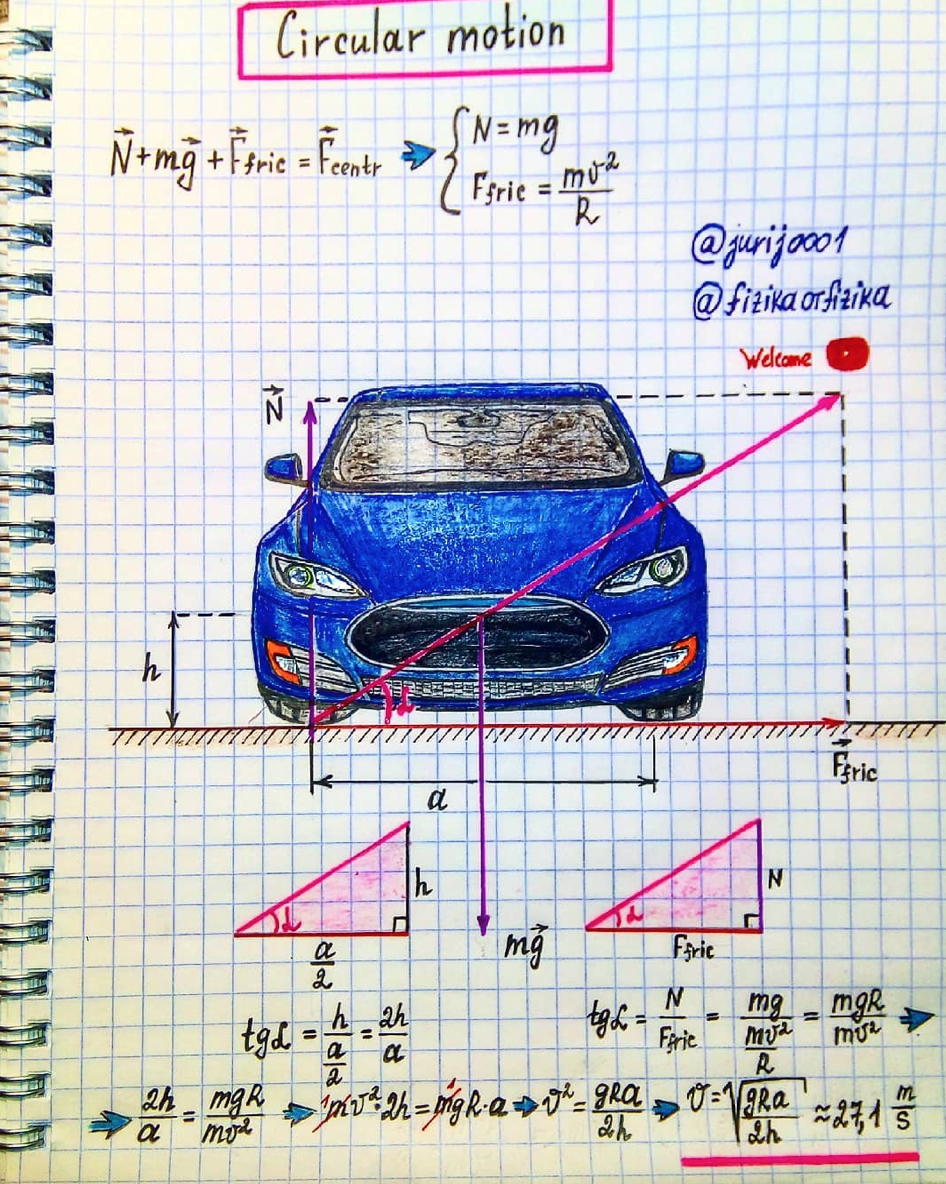 Circular motion
N⃗+mg⃗+F⃗fric = F⃗centr ➔ { N = mg
Ffric = mv²/R
@jurij0001
@fizikaorfizika
Welcome
N⃗
h
α
F⃗fric
a
h
α
a/2
N
α
Ffric
mg⃗
tgα = h/(a/2) = 2h/a
tgα = N/Ffric = mg/(mv²/R) = mgR/mv² ➔
➔ 2h/a = mgR/mv² ➔ ¹mv²·2h = ¹mgR·a ➔ v² = gRa/2h ➔ v = √(gRa/2h) ≈ 27,1 m/s